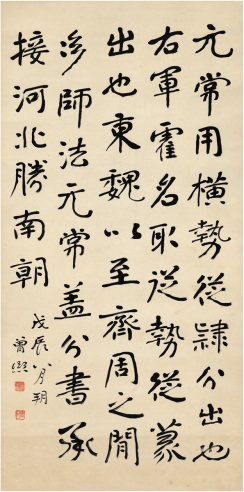 元常用橫勢從隸分出也
右軍霍名取從勢從篆
出也東魏以至齊周之間
師法元常蓋分書承
接河北勝南朝
戊辰八月朔
曾熙